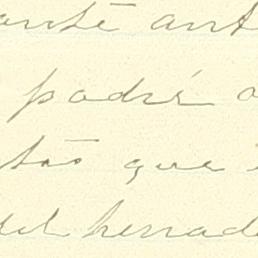 ante ant
podré a
tas que
del herrad